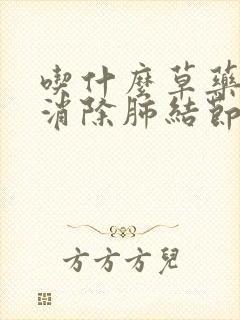 喫什麼草藥
消除肺結節
方方方兒